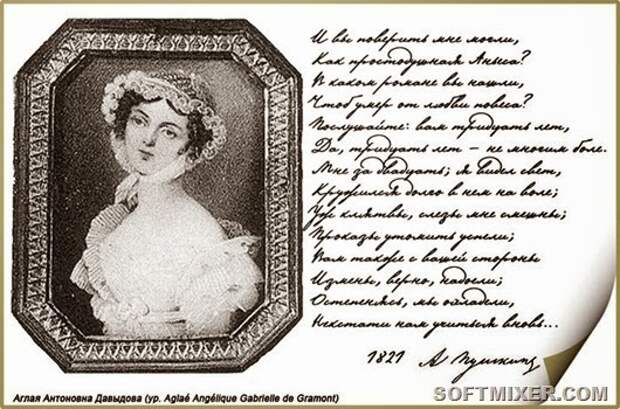 И вы поверить мне могли,
Как простодушная Аньеса?
В каком романе вы нашли,
Чтоб умер от любви повеса?
Послушайте: вам тридцать лет,
Да, тридцать лет — не многим боле.
Мне за двадцать; я видел свет,
Кружился долго в нем на воле;
Уж клятвы, слезы мне смешны;
Проказы утомить успели;
Вам также с вашей стороны
Измены, верно, надоели;
Остепенясь, мы охладели,
Некстати нам учиться вновь...
1821 А Пушкинъ
Аглая Антоновна Давыдова (ур. Aglaé Angélique Gabrielle de Gramont)
SOFTMIXER.COM